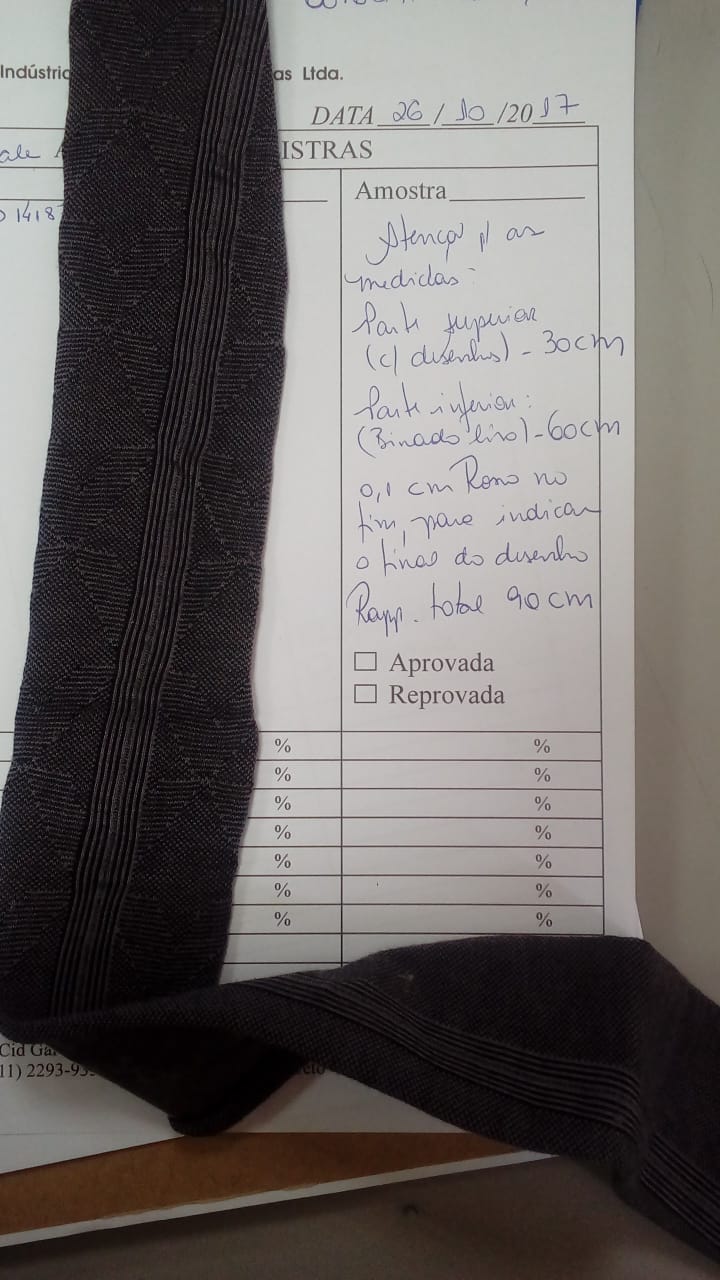 Indústri as Ltda.
DATA 26/10/2017
ale ISTRAS
Amostra
1418
Atenção p/ as
medidas:
Parte superior
(c/ desenhos) - 30cm
Parte inferior:
(Binado liso) - 60cm
0,1 cm Romo no
fim, para indicar
o final do desenho
Rapp. total 90cm
Aprovada
Reprovada
% %
% %
% %
% %
% %
% %
% %
Cid Ga
11) 2293-93